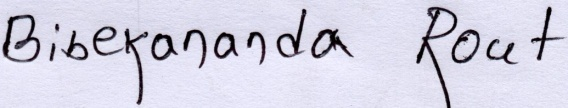 Bibekananda Rout